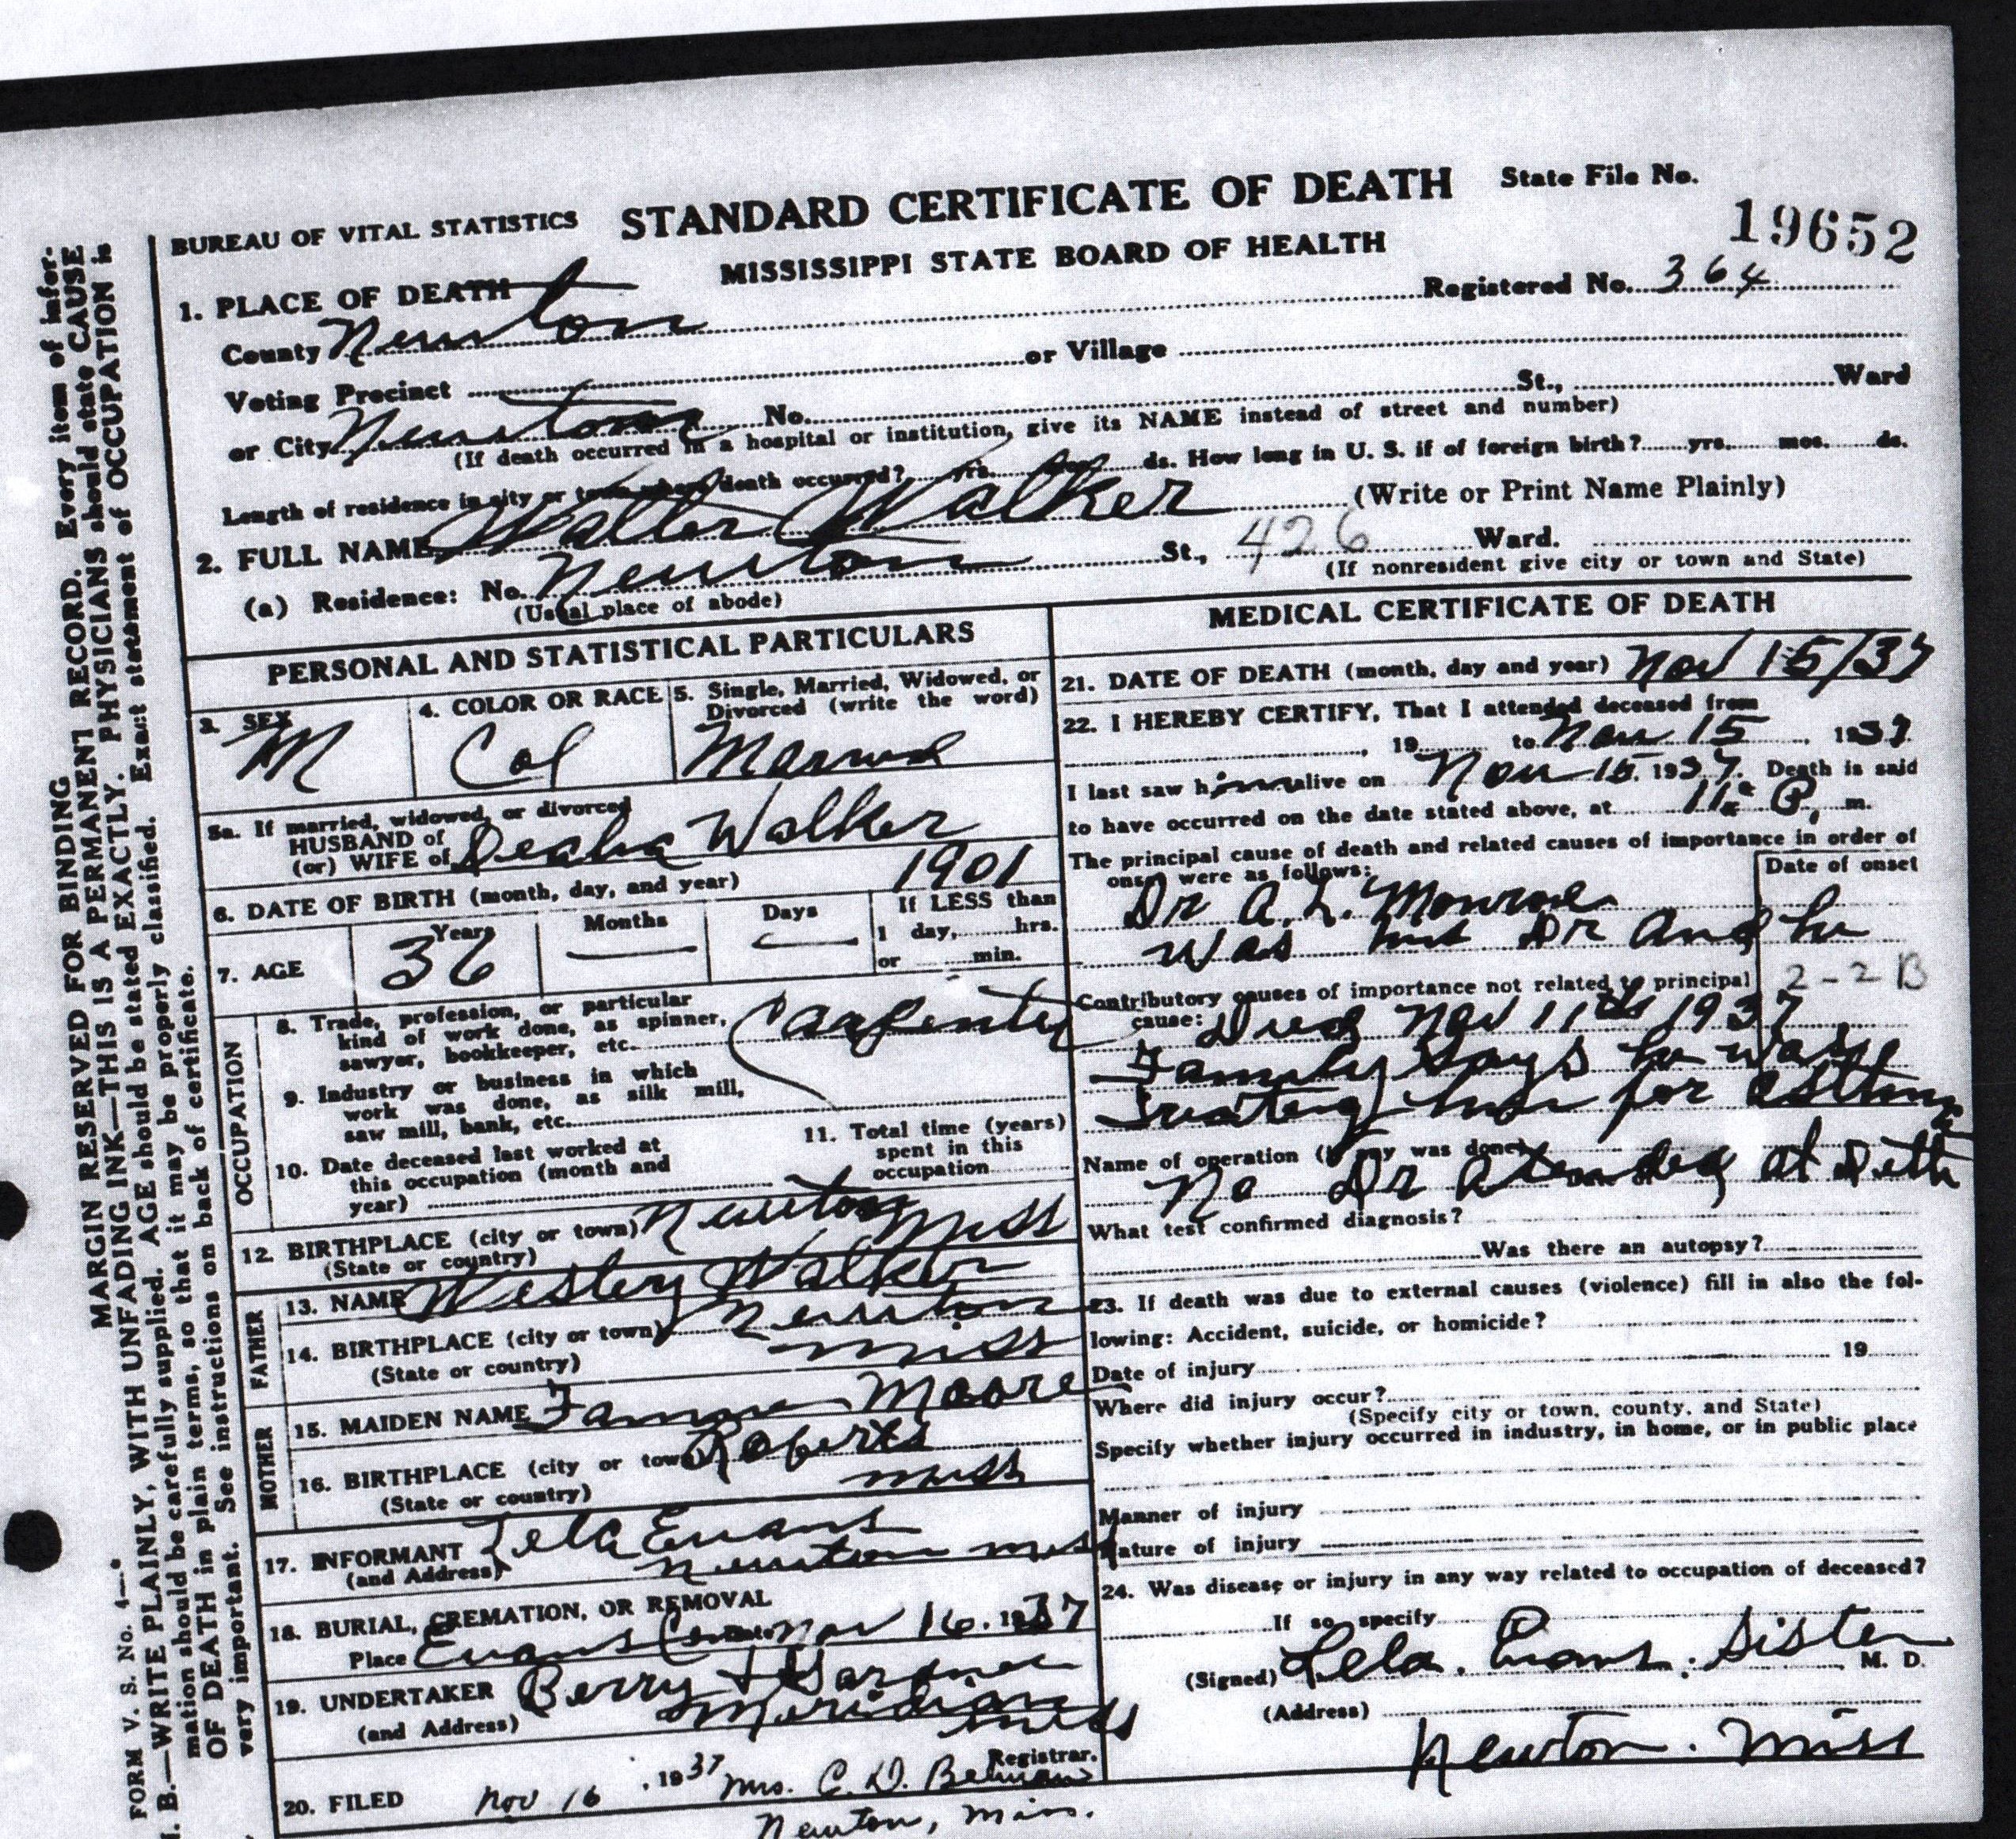 BUREAU OF VITAL STATISTICS
STANDARD CERTIFICATE OF DEATH
State File No.
19652
MISSISSIPPI STATE BOARD OF HEALTH
1. PLACE OF DEATH
Registered No. 364
County Newton
Voting Precinct or Village
or City Newton No. St., Ward
(If death occurred in a hospital or institution, give its NAME instead of street and number)
Length of residence in city or town where death occurred? yrs. mos. ds. How long in U. S. if of foreign birth? yrs. mos. ds.
2. FULL NAME Walter Walker (Write or Print Name Plainly)
(a) Residence: No. Newton St., 426 Ward.
(Usual place of abode) (If nonresident give city or town and State)
PERSONAL AND STATISTICAL PARTICULARS
3. SEX M
4. COLOR OR RACE Col
5. Single, Married, Widowed, or Divorced (write the word)
Married
5a. If married, widowed, or divorced
HUSBAND of
(or) WIFE of Walker
6. DATE OF BIRTH (month, day, and year) 1901
7. AGE Years 36 Months — Days — If LESS than
1 day, hrs.
or min.
OCCUPATION
8. Trade, profession, or particular
kind of work done, as spinner,
sawyer, bookkeeper, etc. Carpenter
9. Industry or business in which
work was done, as silk mill,
saw mill, bank, etc.
10. Date deceased last worked at
this occupation (month and
year)
11. Total time (years)
spent in this
occupation
12. BIRTHPLACE (city or town) Newton Miss
(State or country)
FATHER
13. NAME Wesley Walker
14. BIRTHPLACE (city or town) Newton
(State or country) Miss
MOTHER
15. MAIDEN NAME Moore
16. BIRTHPLACE (city or town) Roberts
(State or country) Miss
17. INFORMANT Lela Evans
(and Address) Newton Miss
18. BURIAL, CREMATION, OR REMOVAL
Place Evans Cem Date Nov 16, 1937
19. UNDERTAKER Berry & Gardner
(and Address) Meridian
Miss
20. FILED Nov 16, 1937 Mrs. C. D. Registrar.
Newton, Miss.
MEDICAL CERTIFICATE OF DEATH
21. DATE OF DEATH (month, day and year) Nov 15/37
22. I HEREBY CERTIFY, That I attended deceased from
, 19 to Nov 15, 1937
I last saw him alive on Nov 15, 1937. Death is said
to have occurred on the date stated above, at 11 P. m.
The principal cause of death and related causes of importance in order of
onset were as follows:
Date of onset
Dr A. L. Monroe
was his Dr and he
2-2 B
Contributory causes of importance not related to principal
cause: Died Nov 11th 1937
Family says he was
treating him for asthma
Name of operation (if any was done)
No Dr atended at Deth
What test confirmed diagnosis?
Was there an autopsy?
23. If death was due to external causes (violence) fill in also the fol-
lowing: Accident, suicide, or homicide?
Date of injury 19
Where did injury occur?
(Specify city or town, county, and State)
Specify whether injury occurred in industry, in home, or in public place
Manner of injury
Nature of injury
24. Was disease or injury in any way related to occupation of deceased?
If so, specify
(Signed) Lela. Evans. Sister M. D.
(Address)
Newton. Miss
MARGIN RESERVED FOR BINDING
FORM V. S. No. 4—
N. B.—WRITE PLAINLY, WITH UNFADING INK—THIS IS A PERMANENT RECORD. Every item of infor-
mation should be carefully supplied. AGE should be stated EXACTLY. PHYSICIANS should state CAUSE
OF DEATH in plain terms, so that it may be properly classified. Exact statement of OCCUPATION is
very important. See instructions on back of certificate.